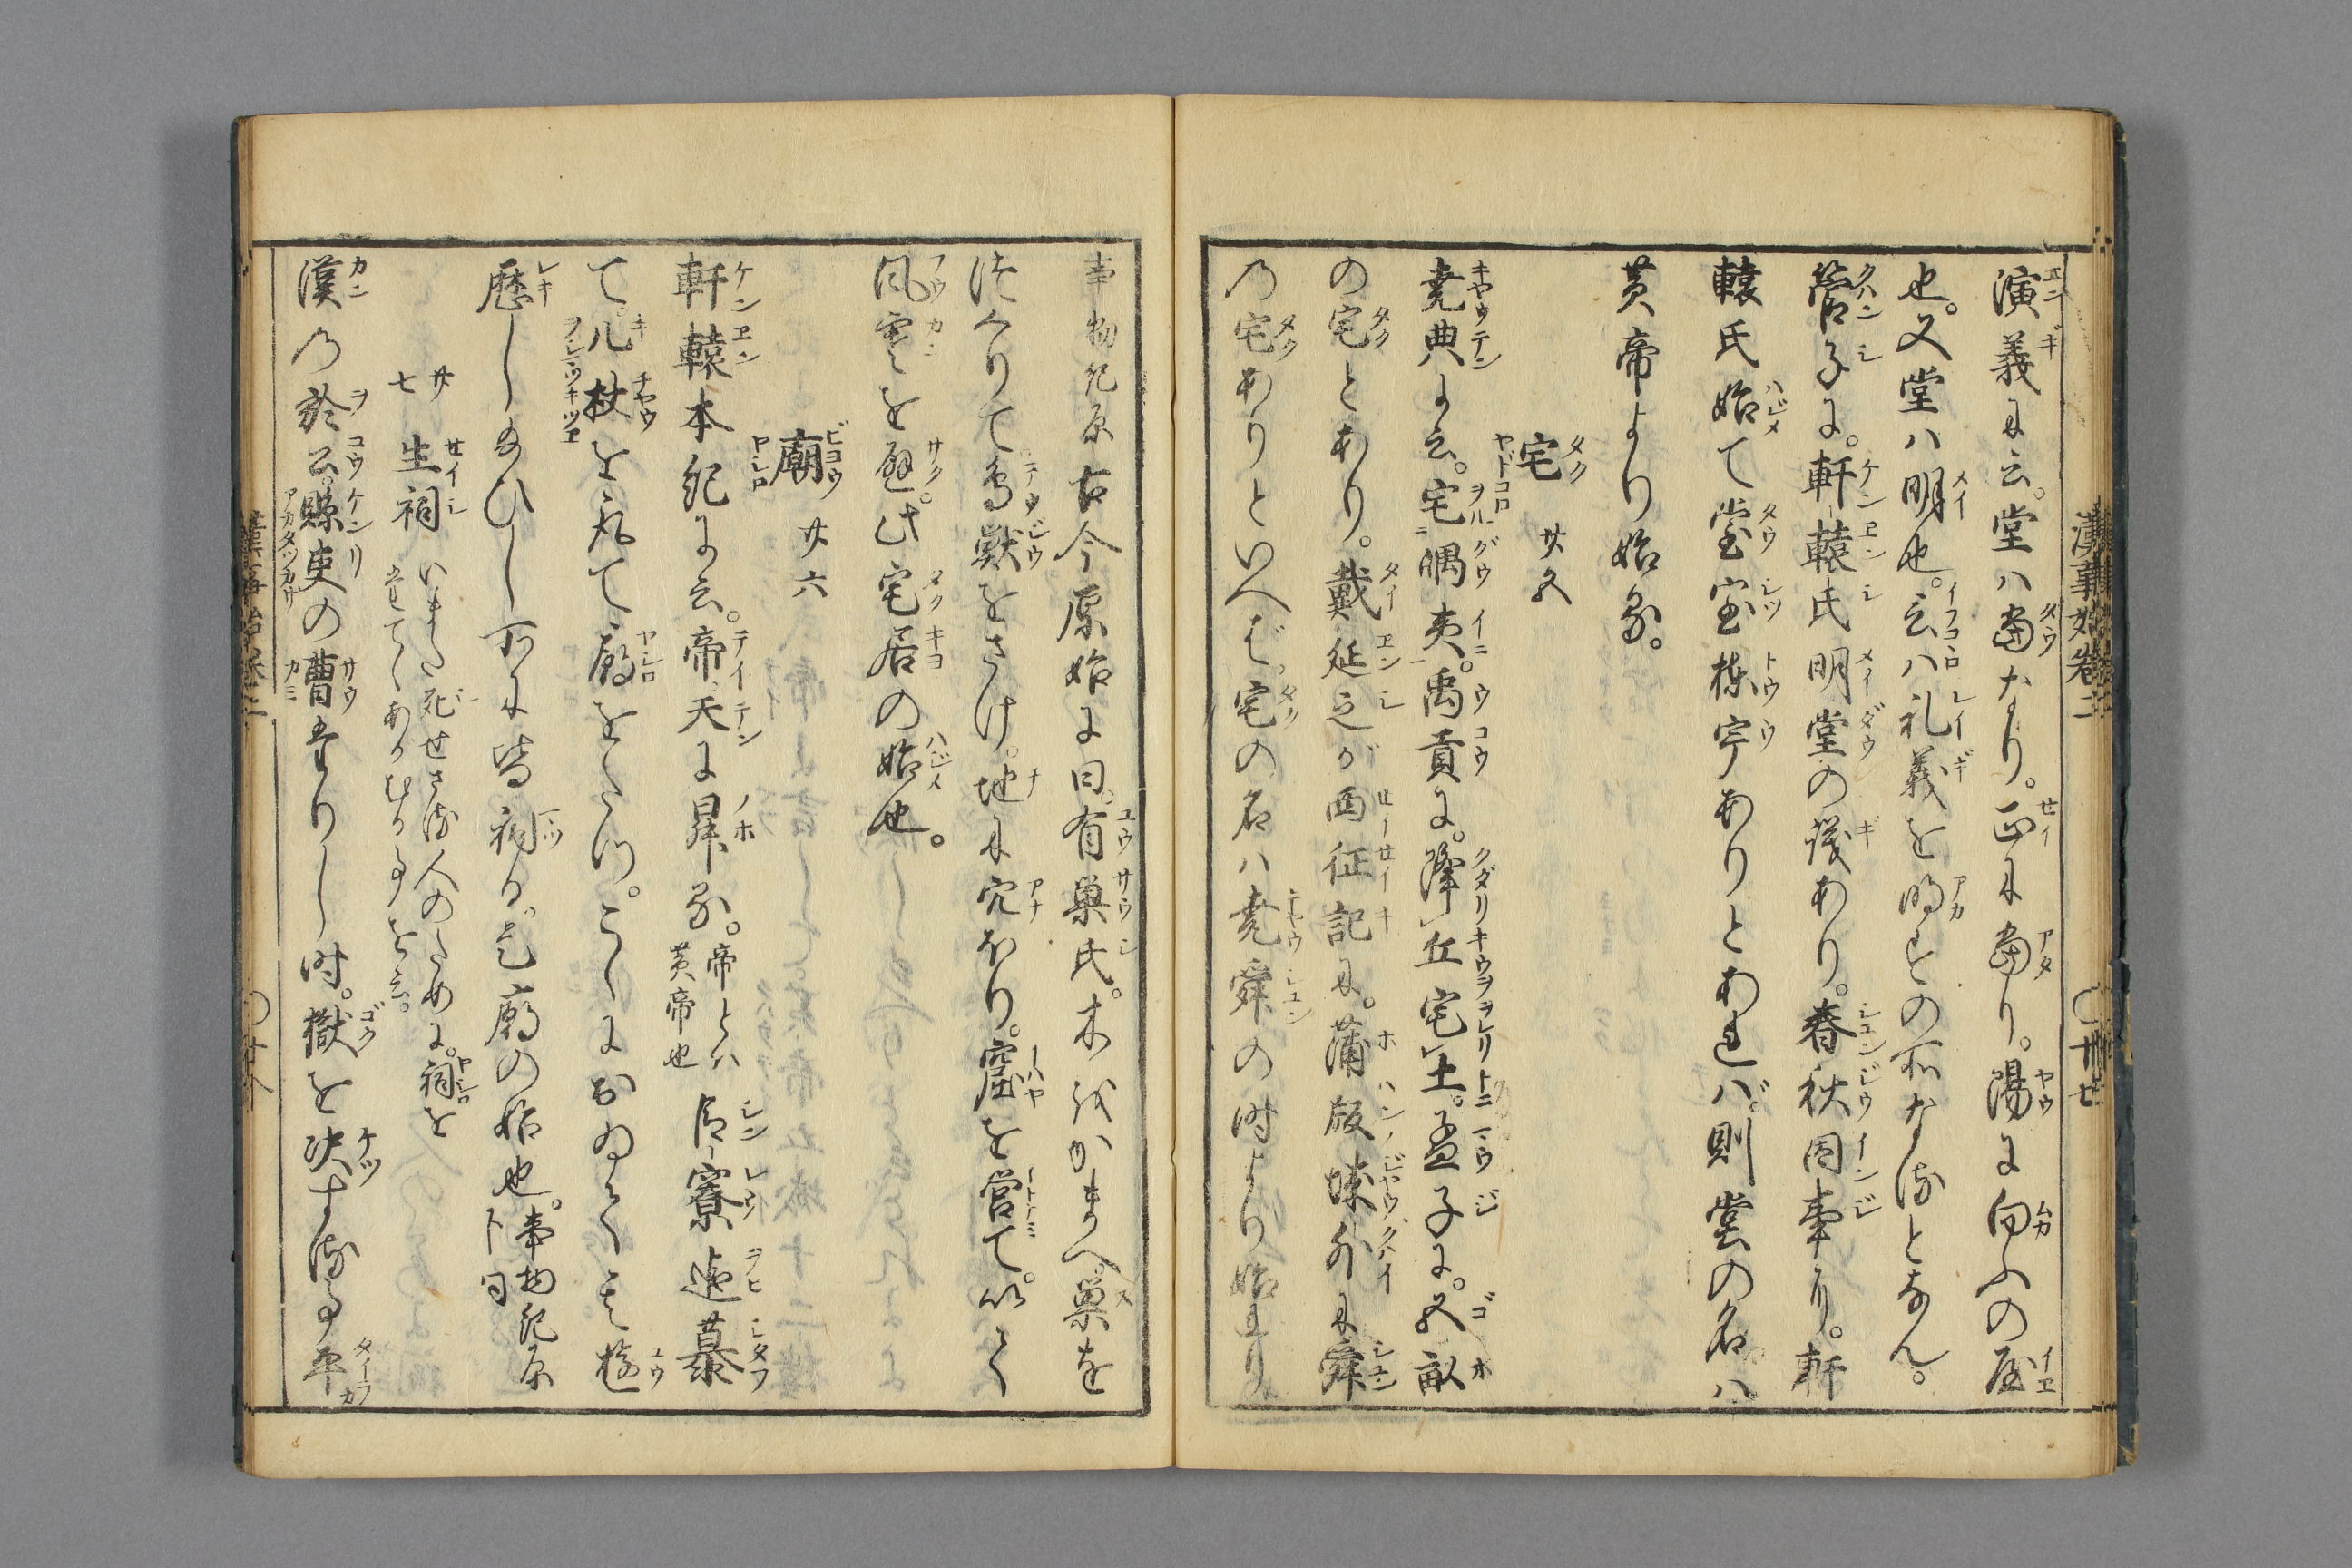 演義に云。堂ハ当なり。正に当り。陽に向ふの屋
也。又堂ハ明也。云ハ礼義を明すの所なるとなん。
管子に。軒轅氏明堂の議あり。春秋因事ニ。軒
轅氏始て堂室棟宇ありとあれバ。則堂の名ハ
黄帝より始る。
宅 廿五
堯典に云。宅嵎夷。禹貢に。降丘宅土。孟子に。五畝
の宅とあり。戴延之が西征記に。蒲坂城外に舜
の宅ありといへば。宅の名ハ堯舜の時より始れり
事物紀原 古今原始に曰。有巣氏。木ををかまへ。巣を
つくりて鳥獣をさけ。地に穴ほり。窟を営て。以て
風寒を避。此宅居の始也。
廟 廿六
軒轅本紀に云。帝天に昇る。帝とハ黄帝也 臣寮追慕
て。几杖を取て。廟をたつ。こゝにおゐて其遊
歴し給ひし所に皆祠る。是廟の始也。事物紀原ト同
廿七 生祠 いまだ死せざる人のために。祠を立てゝあがむる事を云。
漢の於公縣吏の曹たりし時。獄を決する事平
漢事始巻二
漢事始巻二